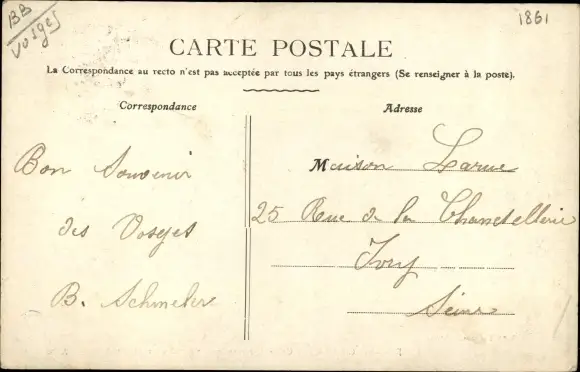 BB
Vosges
1861
CARTE POSTALE
La Correspondance au recto n'est pas acceptée par tous les pays étrangers (Se renseigner à la poste).
Correspondance
Adresse
Bon Souvenir
des Vosges
B.
Maison Larue
25 Rue de la
Ivry
Seine